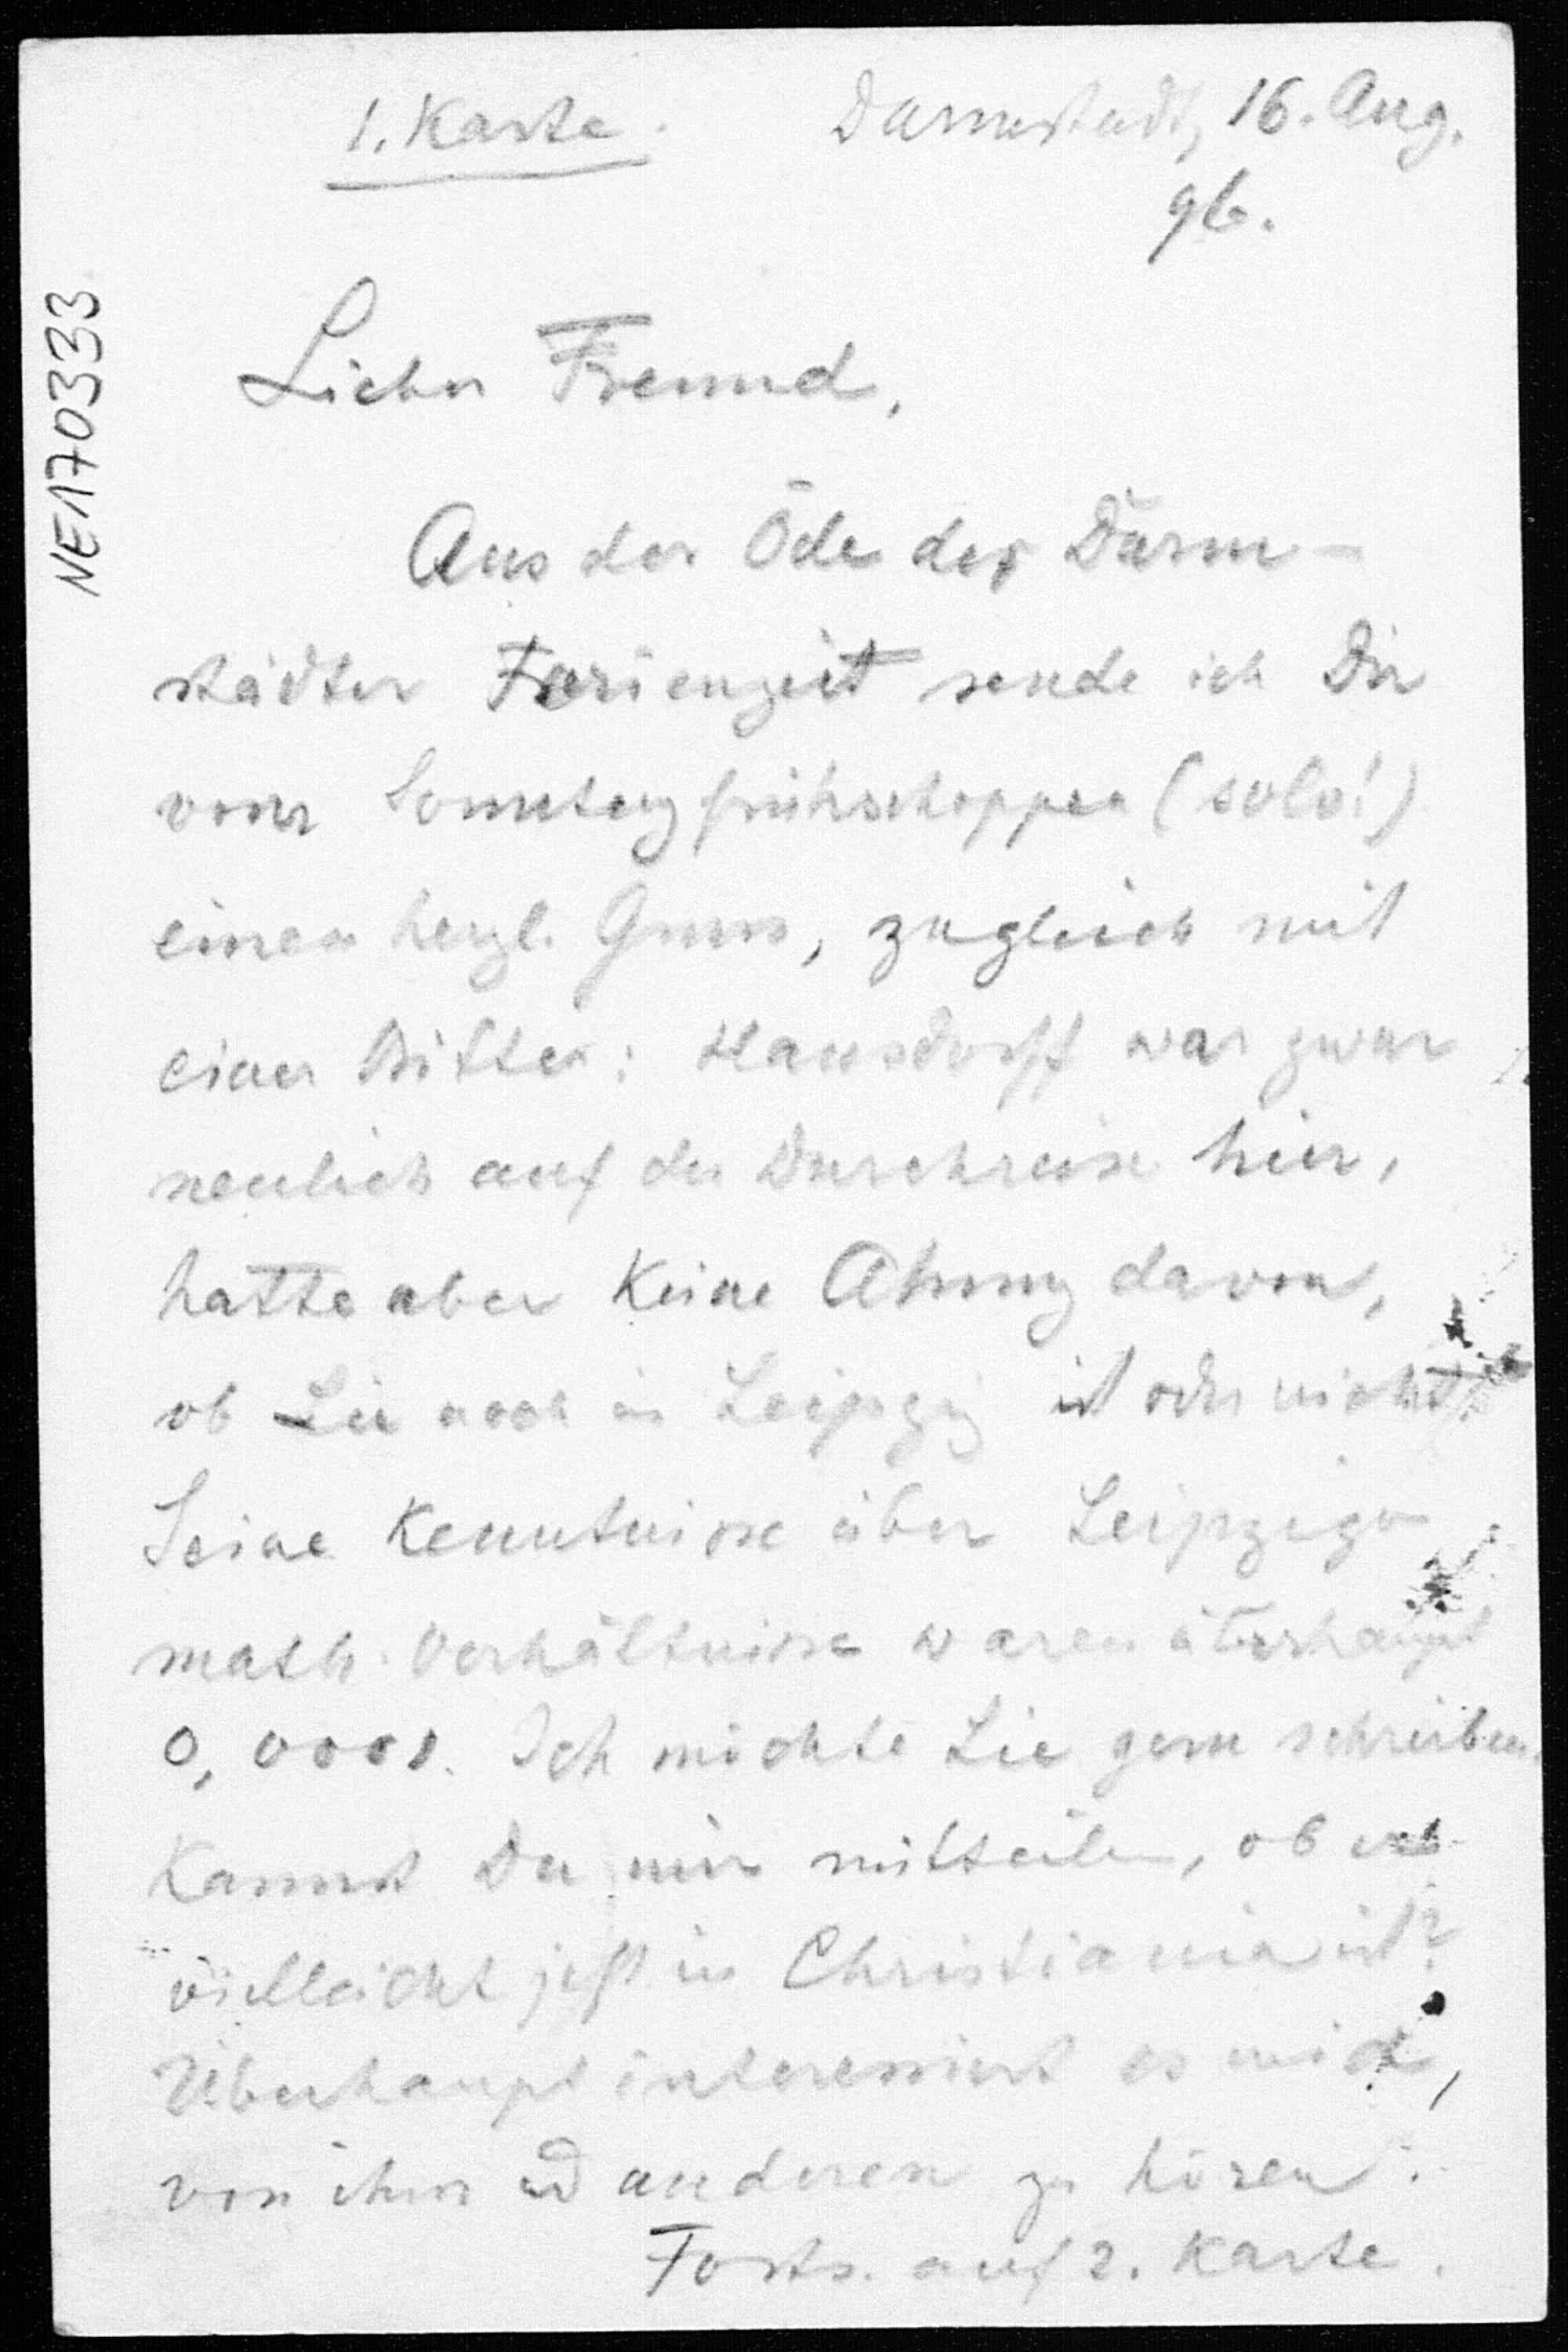 1. Karte. Darmstadt, 16. Aug.
96.
NE170333
Lieber Freund,
Aus der Öde der Darm-
städter Ferienzeit sende ich Dir
vom Sonntagfrühschoppen (solo!)
einen herzl. Gruss, zugleich mit
einer Bitte: Hausdorff war zwar
neulich auf der Durchreise hier,
hatte aber keine Ahnung davon,
ob Lie noch in Leipzig ist oder nicht.
Seine Kenntnisse über Leipziger
math. Verhältnisse waren überhaupt
0,000. Ich möchte Lie gern schreiben.
Kannst Du mir mitteilen, ob er
vielleicht jetzt in Christiania ist?
Überhaupt interessiert es mich,
von ihm und anderen zu hören.
Forts. auf 2. Karte.